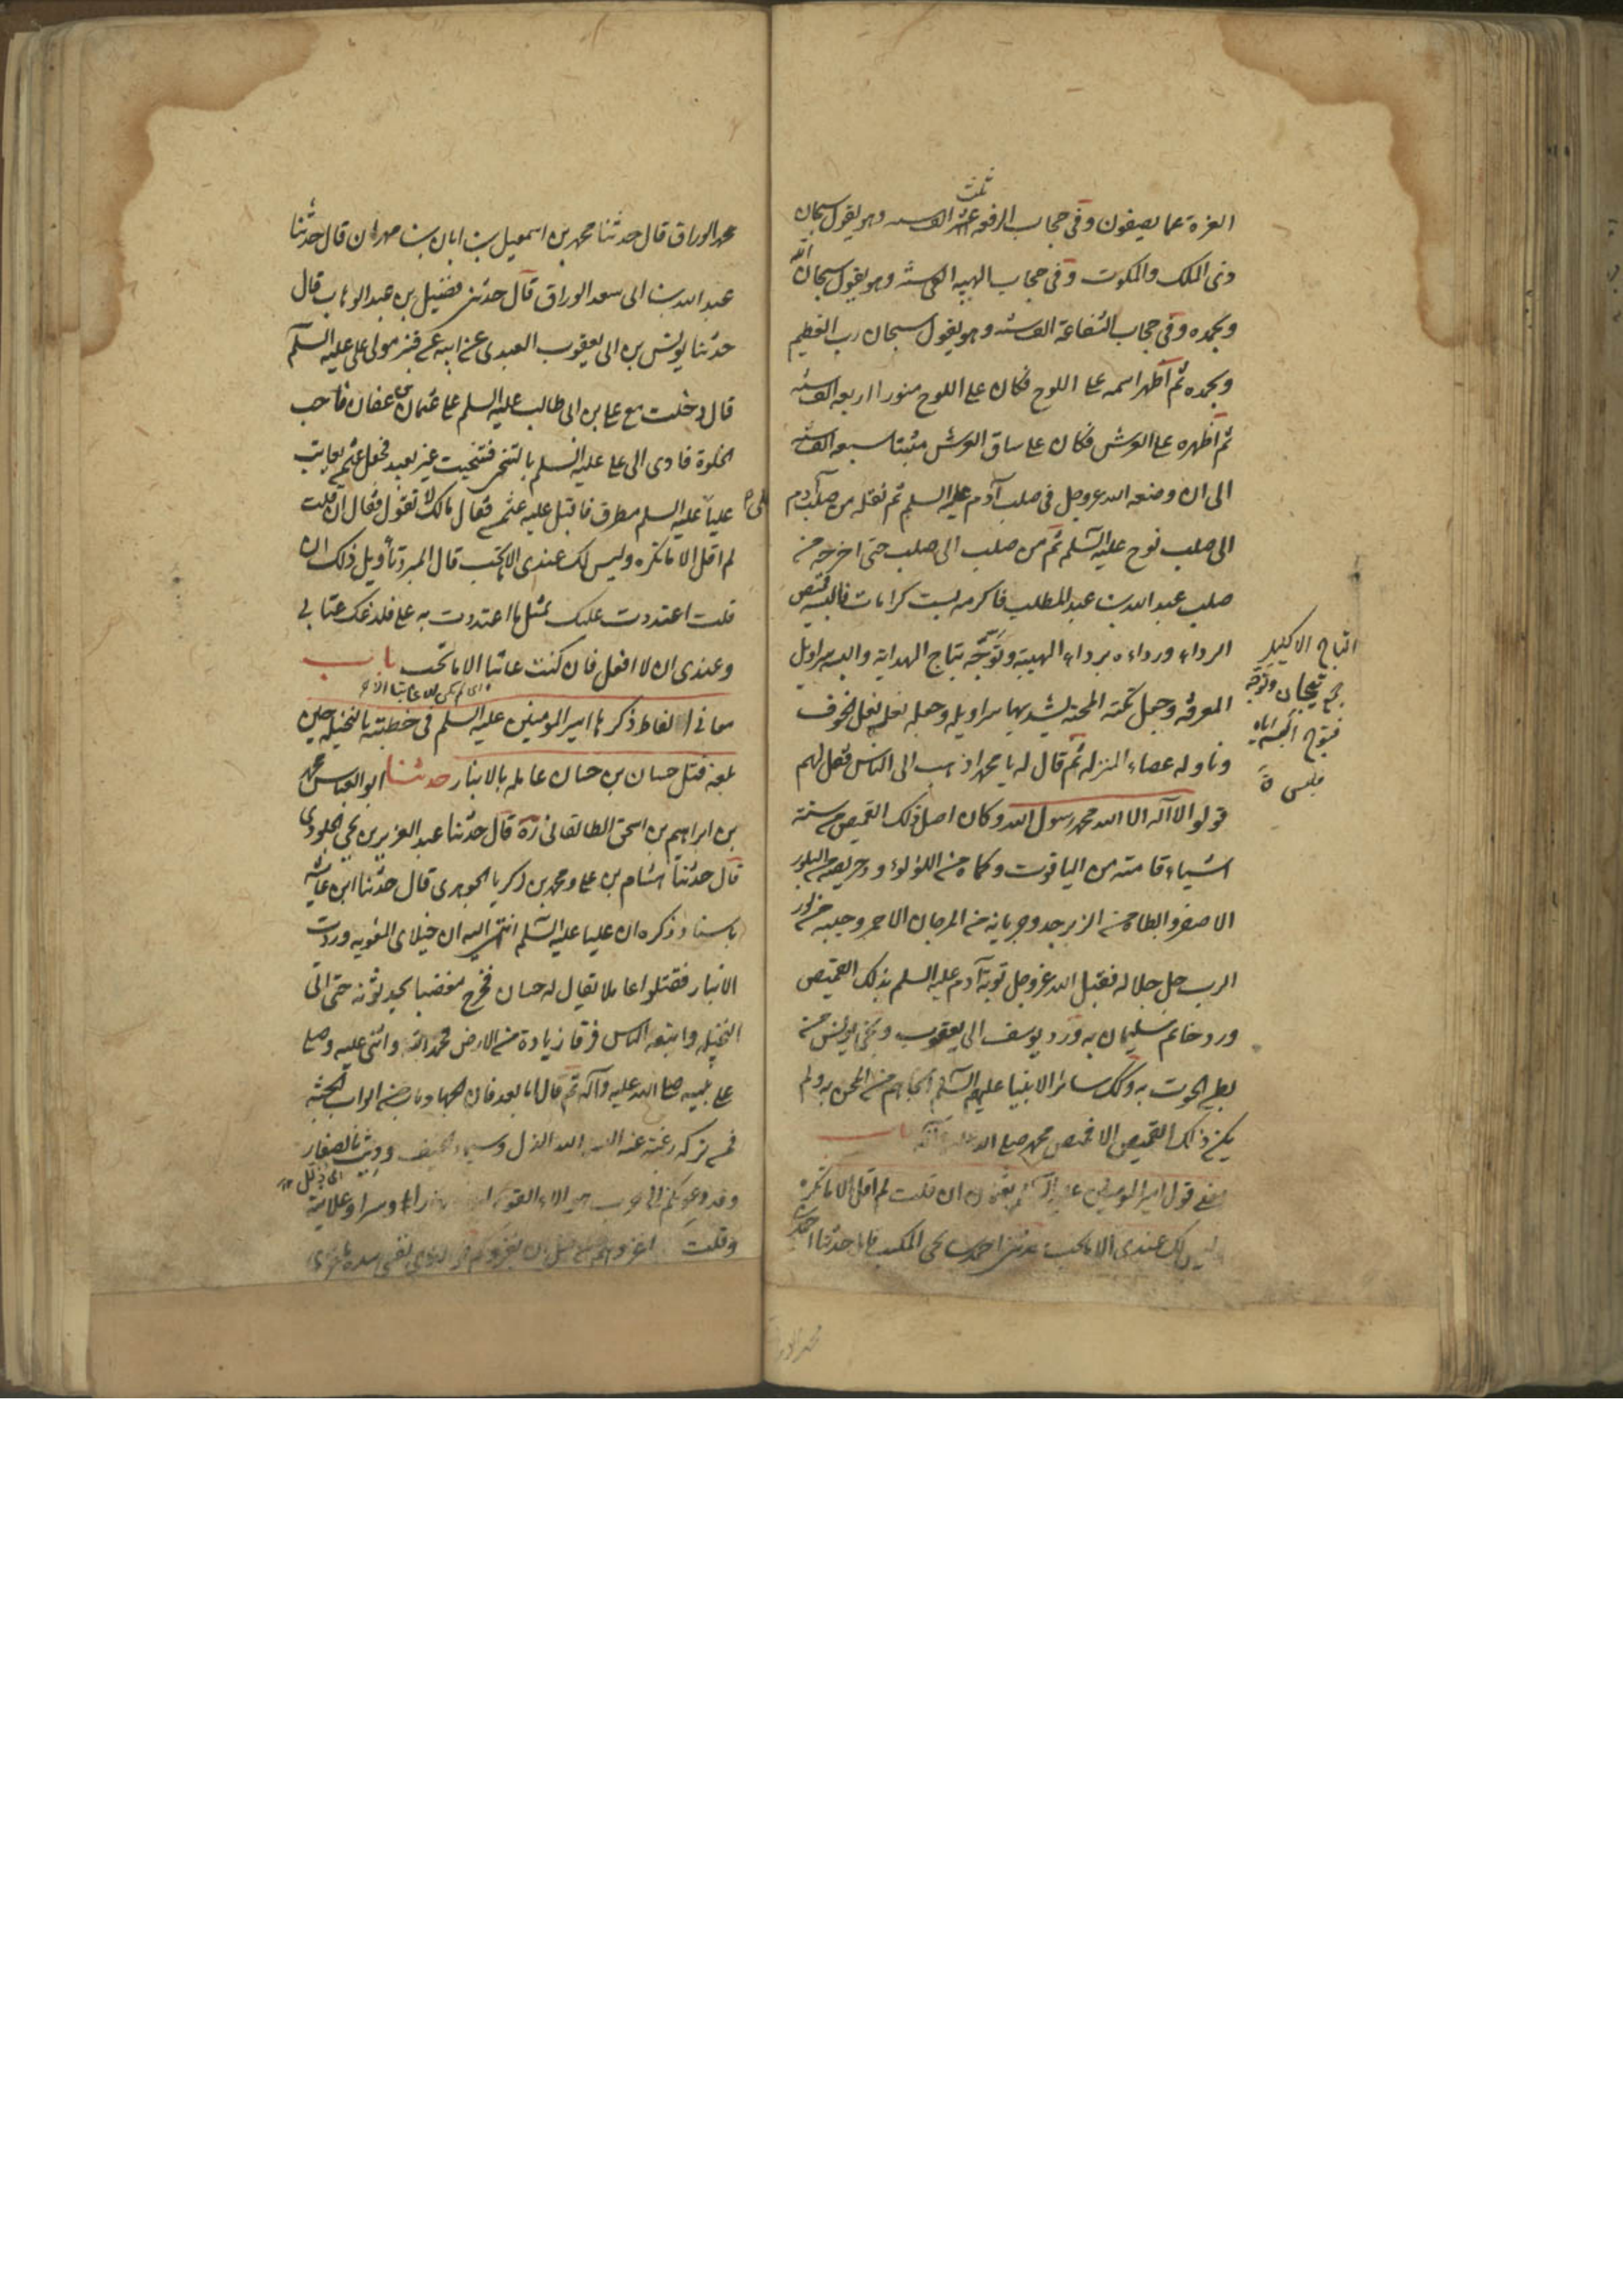 ثلث
العزة عما يصفون وفى حجاب الرفعه عشر الف سنه وهو يقول سبحان
ذى الملك والملكوت وفى حجاب الهيبه الفى سنة وهو يقول سبحان الله
وبحمده وفى حجاب الشفاعة الف سنه وهو يقول سبحان رب العظيم
وبحمده ثم اظهر اسمه على اللوح فكان على اللوح منورا اربعه الف سنه
ثم اظهره على العرش فكان على ساق العرش مثبتا سبعه الف سنه
الى ان وضعه الله عز وجل فى صلب آدم عليه السلم ثم نقله من صلب آدم
الى صلب نوح عليه السلم ثم من صلب الى صلب حتى اخرجه من
صلب عبد الله بن عبد المطلب فاكرمه بست كرامات فالبسه قميص
الرداء ورداءه برداء الهيبة وتوجه بتاج الهداية والبسه سراويل
المعرفه وجعل تكته المحبة يشد بها سراويله وجعله نعله نعل الخوف
وناوله عصاء المنزله ثم قال له يا محمد اذهب الى الناس فقل لهم
قولوا لا اله الا الله محمد رسول الله وكان اصل ذلك القميص من ستة
اشياء قامته من الياقوت وكماه من اللؤلؤ ودخريصه من البلور
الاصفر وابطاه من الزبرجد وجربانه من المرجان الاحمر وجيبه من نور
الرب جل جلاله فقبل الله عز وجل توبة آدم عليه السلم بذلك القميص
ورد خاتم سليمان به ورد يوسف الى يعقوب ونجى يونس من
بطن الحوت به وكذلك سائر الانبيا عليهم السلم انجاهم من المحن به ولم
يكن ذلك القميص الا قميص محمد صلى الله عليه وآله باب
معنى قول امير المومنين عليه السلم لعثمان ان قلت لم اقل الا ما تكره
وليس لك عندى الا ما تحب حدثنا احمد بن يحيى المكتب قال حدثنا احمد بن
التاج الاكليل
ج تيجان وتوجه
فتتوج البسه اياه
فلبس ق
محمد الور
محمد الوراق قال حدثنا محمد بن اسمعيل بن ابان بن مهران قال حدثنا
عبد الله بن ابى سعد الوراق قال حدثنى فضيل بن عبد الوهاب قال
حدثنا يونس بن ابى يعقوب العبدى عن ابيه عن قنبر مولى على عليه السلم
قال دخلت مع على بن ابى طالب عليه السلم على عثمان بن عفان فاحب
الخلوة فاومى الى على عليه السلم بالتنحى فتنحيت غير بعيد فجعل عثمن يعاتب
علياً عليه السلم مطرق فاقبل عليه عثمن فقال مالك لا تقول فقال ان قلت
لم اقل الا ما تكره وليس لك عندى الا ما تحب قال المبرد تأويل ذلك ان
قلت اعتددت عليك بمثل ما اعتددت به على فلدغك عتابى
وعندى ان لا افعل فان كنت عاتبا الا ما تحب باب
معانى الفاظ ذكرها امير المومنين عليه السلم فى خطبته بالنخيله حين
بلغه قتل حسان بن حسان عامله بالانبار حدثنا ابو العباس محمد
بن ابراهيم بن اسحق الطالقانى ره قال حدثنا عبد العزيز بن يحيى الجلودى
قال حدثنا هشام بن على ومحمد بن زكريا الجوهرى قال حدثنا ابن عائشه
باسناد ذكره ان عليا عليه السلم انتهى اليه ان خيلا لمعويه وردت
الانبار فقتلوا عاملا يقال له حسان فخرج مغضبا يجر ثوبه حتى اتى
النخيله واتبعه الناس فرقا زيادة من الارض فحمد الله واثنى عليه وصلى
على نبيه صلى الله عليه وآله ثم قال اما بعد فان الجهاد باب من ابواب الجنة
فمن تركه رغبة عنه البسه الله الذل وسيماء الخسف وديث بالصغار
اى ذلل
وقد دعوتكم الى حرب هولاء القوم ليلا ونهارا وسرا وعلانية
وقلت اغزوهم من قبل ان يغزوكم فوالذى نفسى بيده ما غزى